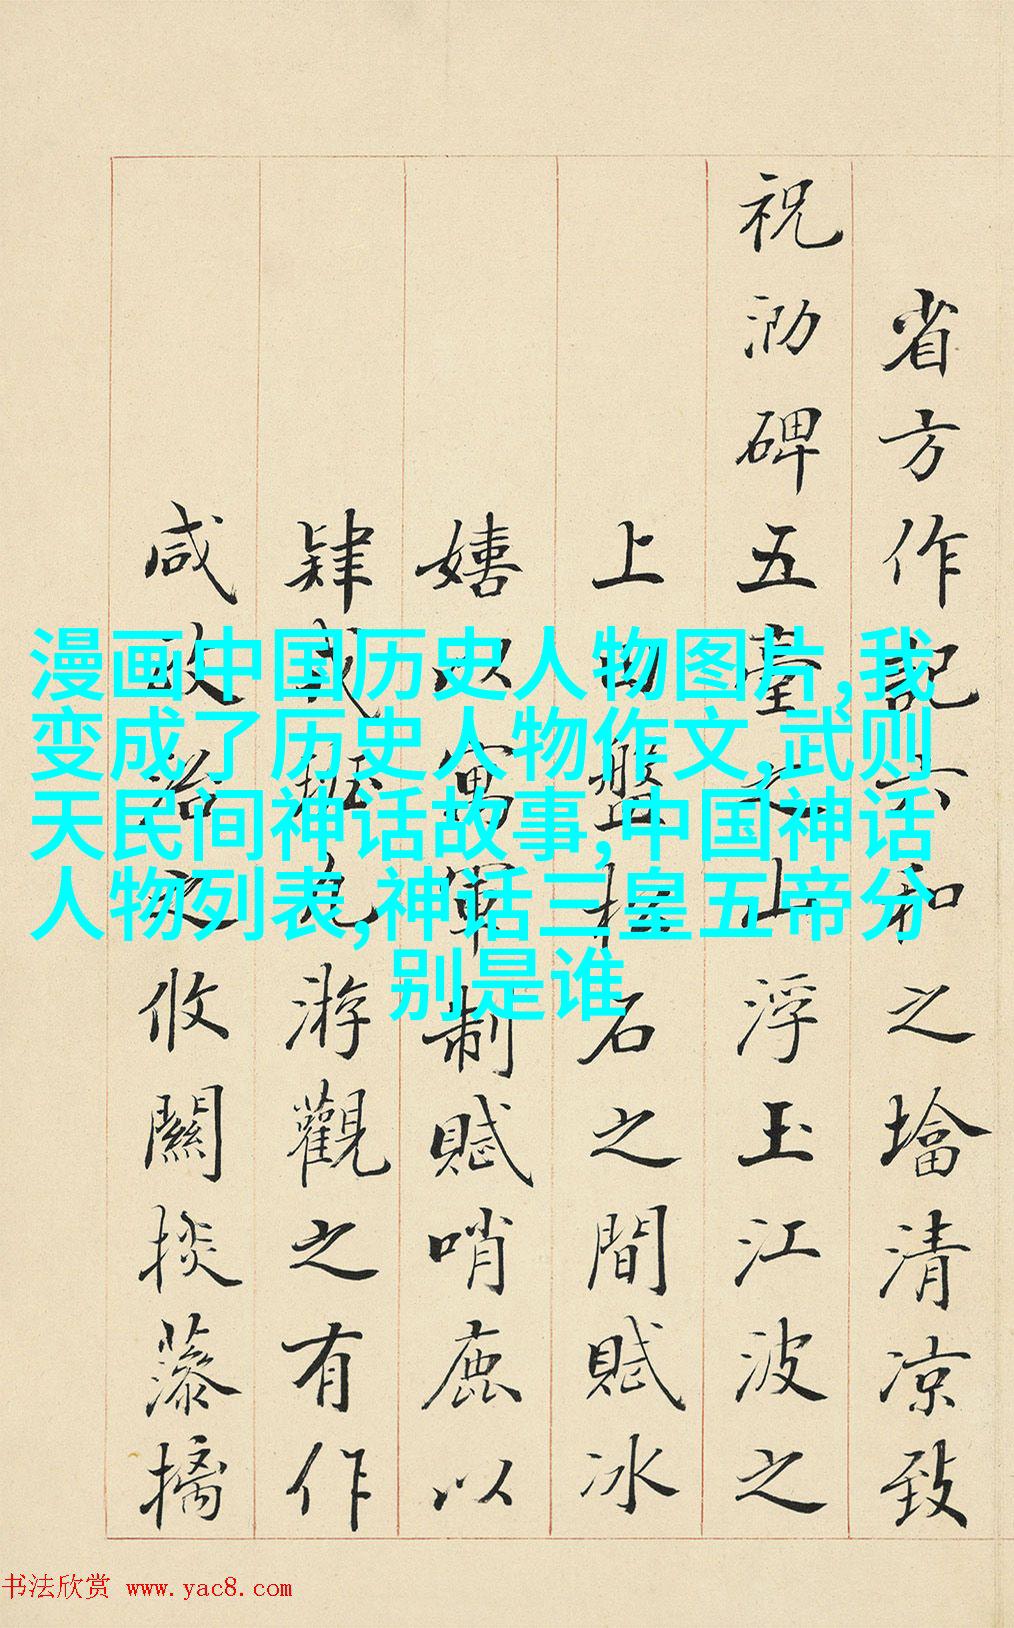 漫画中国历史人物图片,我
变成了历史人物作文,武则
天民间神话故事,中国神话
人物列表,神话三皇五帝分
别是谁
省方作記六和之墖清涼致
祝泐碑五臺之山浮玉江波之
上盤石之間賦冰
嬉以寓軍制賦哨鹿以
肆武凡游觀之有作
咸政治之攸關掞藻摛
书法欣赏 www.yac8.com